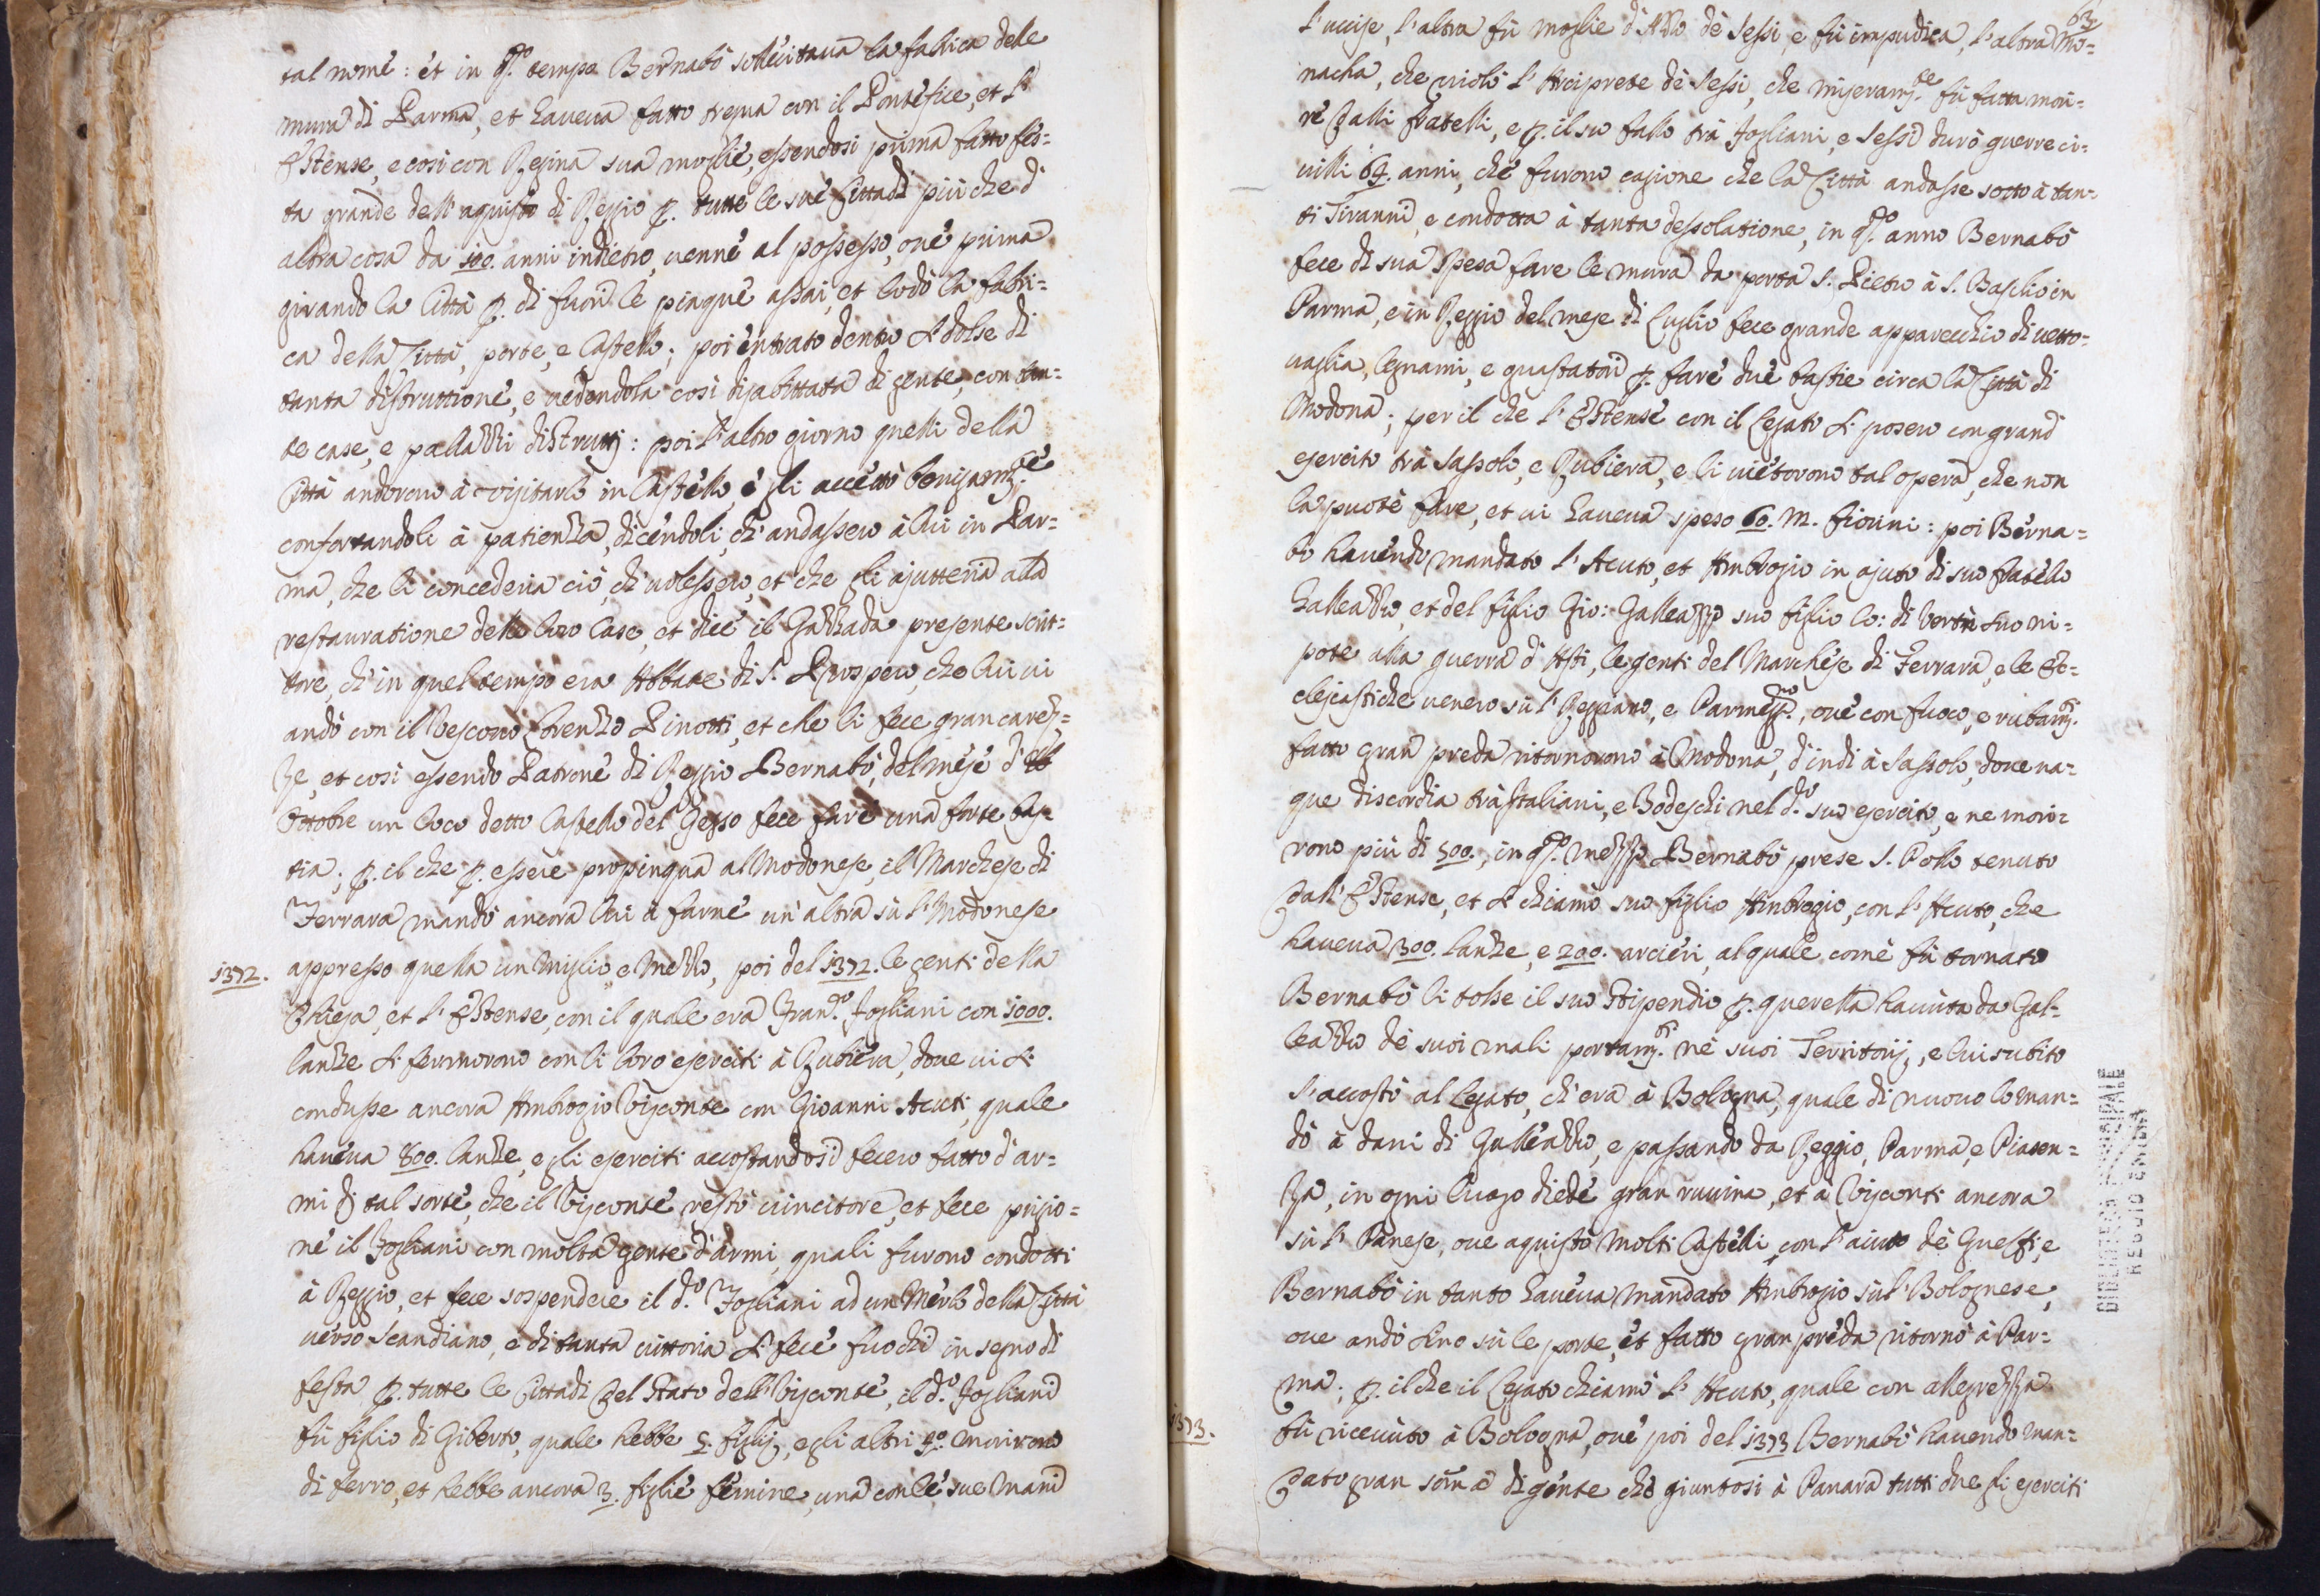 tal nome: et in q.to tempo Bernabò sollecitaua la fabrica delle
mura di Parma, et haueua fatto tregua con il Pontefice, et l'
Estense, e così con Regina sua moglie, essendosi prima fatto fes-
ta grande dell'aquisto di Reggio p. tutte le sue Cittadi più che d'
altra cosa da 100. anni indietro, uenne al possesso, oue prima
girando la Città p. di fuori le piaque assai, et lodò la fabri-
ca della Città, porte, e Castello; poi entrato dentro si dolse di
tanta distruttione, e uedendola così disabittata di gente, con tan-
te case, e pallazzi distrutti: poi l'altro giorno quelli della
Città andorono à visitarlo in Castello, e gli accettò benignam.te
confortandoli à patienza, dicendoli, ch'andassero à lui in Par-
ma, che li concederia ciò, ch'uolessero, et che gli ajutteria alla
restauratione delle loro Case, et dice il Gazzada presente scrit-
tore, ch'in quel tempo era Abbate di S. Prospero, che lui ui
andò con il Vescouo Lorenzo Pinotti, et che li fece gran carez-
ze, et così essendo Patrone di Reggio Bernabò, del mese d'
Ottobre un loco detto Castello del Gesso fece fare una forte bas-
tia; p. il che p. essere propinqua al Modonese, il Marchese di
Ferrara mandò ancora lui à farne un'altra sù l'Modonese
1372. appresso quella un Miglio, e Mezzo, poi del 1372. le genti della
Chiesa, et l'Estense, con il quale era Fran.co Fogliani con 1000.
lanze si fermorono con li loro eserciti à Rubiera, doue ui si
condusse ancora Ambrogio Visconte con Gioanni Acuti, quale
haueua 800. lanze, e gli eserciti accostandosi fecero fatto d'ar-
mi di tal sorte, che il Visconte restò uincitore, et fece prigio-
ne il Fogliani con molta gente d'armi, quali furono condotti
à Reggio, et fece sospendere il d.o Fogliani ad un Merlo della Città
uerso Scandiano, e di tanta uittoria si fece fuochi in segno di
festa p. tutte le Cittadi del Stato dell'Visconte, il d.o Fogliani
fù figlio di Giberto, quale hebbe 5. figlij, e gli altri 4.o morirono
di ferro, et hebbe ancora 3. figlie femine, una con le sue mani
63
l'uccise, l'altra fù moglie d'Azzo dè Sessi, e fù impudica, l'altra mo-
nacha, che uiolò l'Arciprete dè Sessi, che miseram.te fù fatta mori-
re dalli fratelli, e p. il suo fallo trà Fogliani, e Sessi durò guerre ci-
uilli 64. anni, che furono cagione che la Città andasse sotto à tan-
ti Tiranni, e condotta à tanta dessolatione, in q.to anno Bernabò
fece di sua spesa fare le mura da porta S. Pietro à S. Basilio in
Parma, e in Reggio del mese di Luglio fece grande apparecchio di uetto-
uaglia, legnami, e guastatori p. fare due bastie circa la Città di
Modona; per il che l'Estense con il Legato si posero con grand
esercito trà Sassolo, e Rubiera, e li uietorono tal opera, che non
la puotè fare, et ui haueua speso 60. M. fiorini: poi Berna-
bò hauendo mandato l'Acuto, et Ambrogio in ajuto di suo fratello
Galleazzo, et del figlio Gio: Galleazzo suo figlio Co: di Vertù suo ni-
pote alla guerra d'Asti, le genti del Marchese di Ferrara, e le Ec-
clesiastiche uenero sù l'Reggiano, e Parmeg.no, oue con fuoco, e rubam.ti
fatto gran preda ritornorono à Modona, d'indi à Sassolo, doue na-
que discordia trà Italiani, e Todeschi nel d.o suo esercito, e ne mori-
rono più di 500., in q.to mezzo Bernabò prese S. Pollo tenuto
dall'Estense, et si chiamò suo figlio Ambrogio, con l'Acuto, che
haueua 300. lanze, e 200. arcieri, al quale come fù tornato
Bernabò li tolse il suo stipendio p. querella hauuta da Gal-
leazzo de suoi mali portam.ti ne suoi Territorij, e lui subito
s'accostò al Legato, ch'era à Bologna, quale di nuouo lo man-
dò à dani di Galleazzo, e passando da Reggio, Parma, e Piacen-
za, in ogni luogo diede gran ruuina, et à Visconti ancora
sù l'Pauese, oue aquistò molti Castelli, con l'aiuto dè Guelfi, e
Bernabò in tanto haueua mandato Ambrogio sù l'Bolognese,
oue andò sino sù le porte, et fatto gran preda ritornò à Par-
ma; p. il che il Legato chiamò l'Acuto, quale con allegrezza
1373. fù riceuuto à Bologna, oue poi del 1373 Bernabò hauendo man-
dato gran soma di gente che giuntosi à Panara tutti due gli eserciti
BIBLIOTECA MUNICIPALE
REGGIO EMILIA